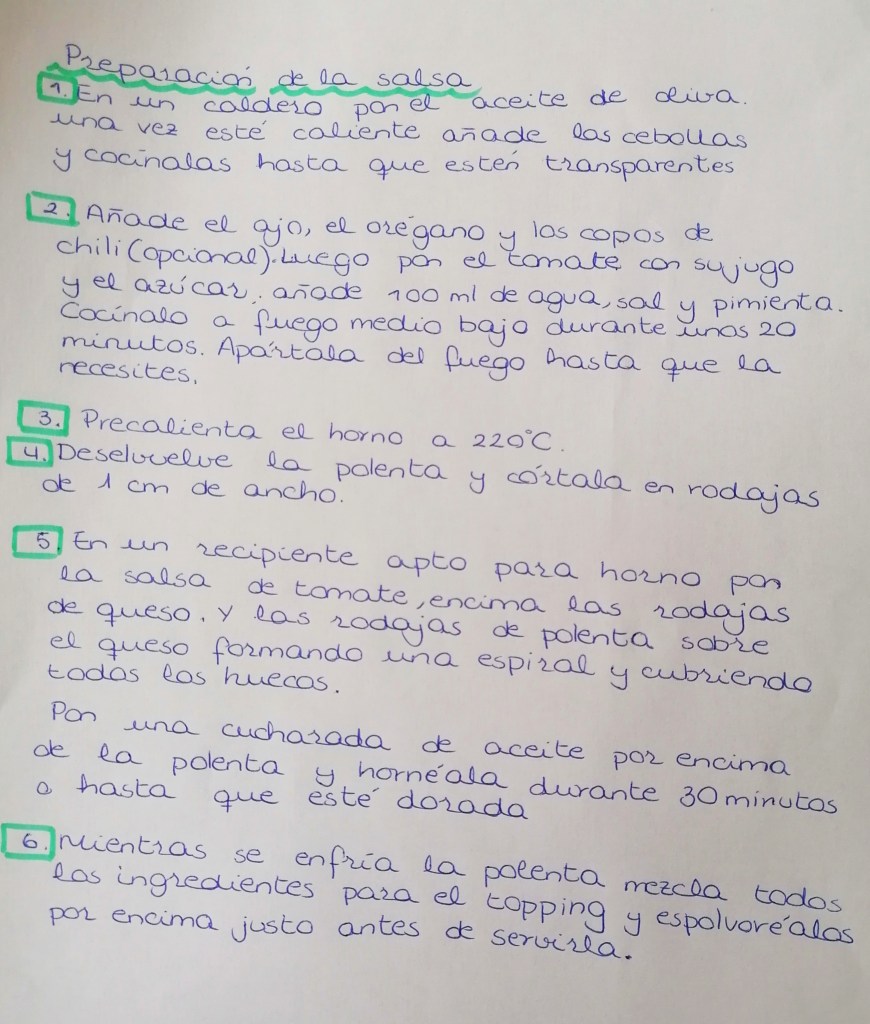 Preparación de la salsa
1. En un caldero pon el aceite de oliva.
una vez esté caliente añade las cebollas
y cocínalas hasta que estén transparentes
2. Añade el ajo, el orégano y los copos de
chili (opcional). Luego pon el tomate con su jugo
y el azúcar. añade 100 ml de agua, sal y pimienta.
Cocínalo a fuego medio bajo durante unos 20
minutos. Apártala del fuego hasta que la
necesites.
3. Precalienta el horno a 220°C.
4. Deselvuelve la polenta y córtala en rodajas
de 1 cm de ancho.
5. En un recipiente apto para horno pon
la salsa de tomate, encima las rodajas
de queso. Y las rodajas de polenta sobre
el queso formando una espiral y cubriendo
todos los huecos.
Pon una cucharada de aceite por encima
de la polenta y hornéala durante 30 minutos
o hasta que esté dorada
6. Mientras se enfría la polenta mezcla todos
los ingredientes para el topping y espolvoréalos
por encima justo antes de servirla.